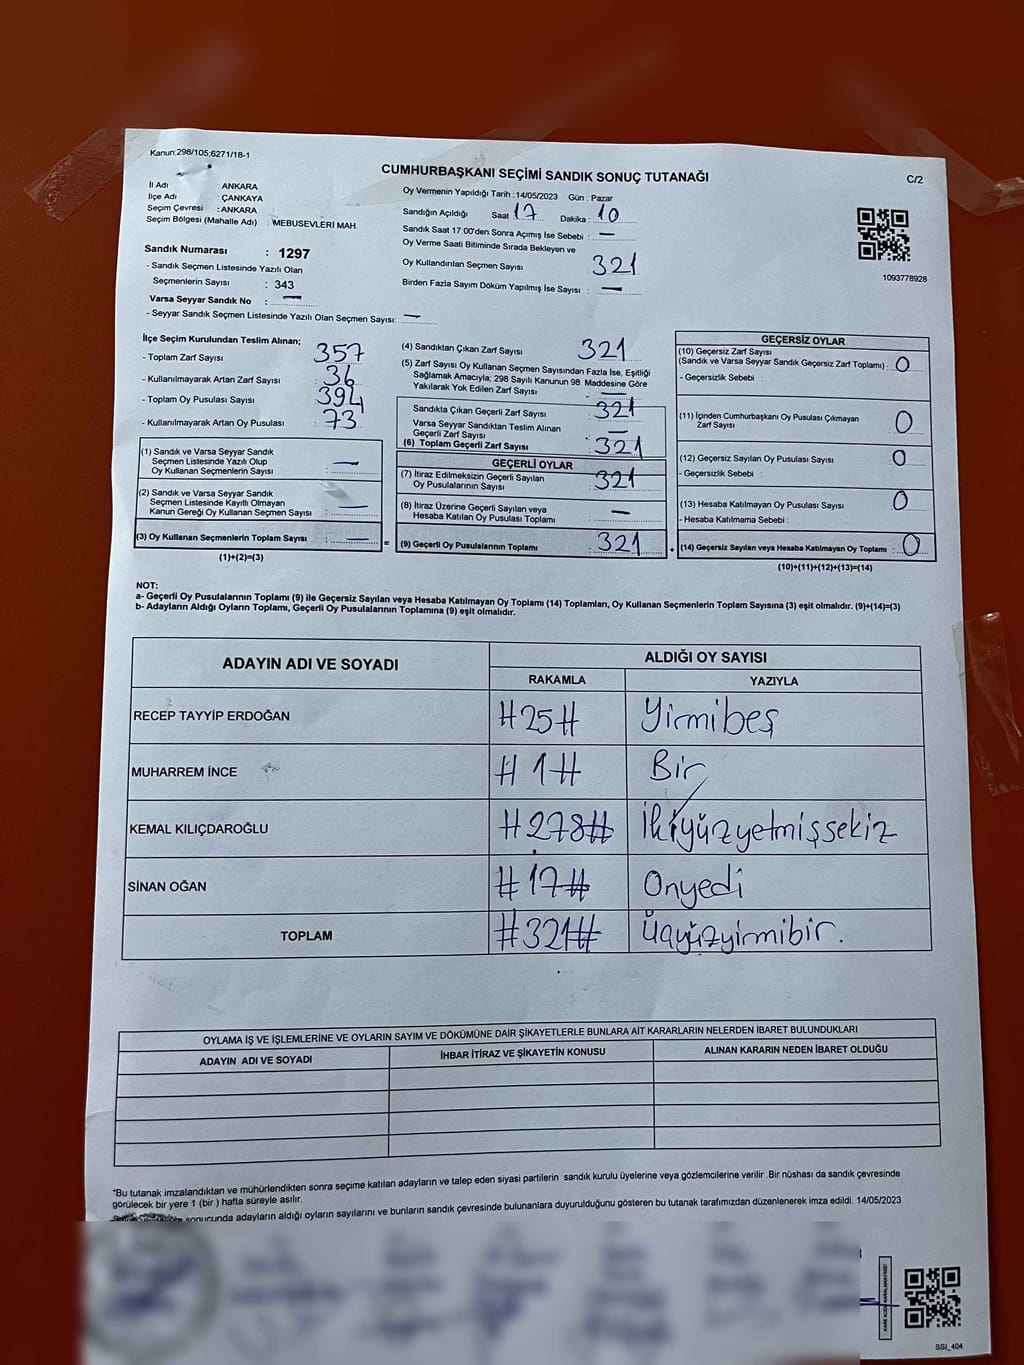 Kanun:298/105;6271/18-1
CUMHURBAŞKANI SEÇİMİ SANDIK SONUÇ TUTANAĞI
C/2
İl Adı : ANKARA
İlçe Adı : ÇANKAYA
Seçim Çevresi : ANKARA
Seçim Bölgesi (Mahalle Adı) : MEBUSEVLERİ MAH.
Sandık Numarası : 1297
- Sandık Seçmen Listesinde Yazılı Olan
Seçmenlerin Sayısı : 343
Varsa Seyyar Sandık No : —
- Seyyar Sandık Seçmen Listesinde Yazılı Olan Seçmen Sayısı: —
Oy Vermenin Yapıldığı Tarih :14/05/2023 Gün : Pazar
Sandığın Açıldığı Saat 17 Dakika : 10
Sandık Saat 17:00'den Sonra Açılmış İse Sebebi : —
Oy Verme Saati Bitiminde Sırada Bekleyen ve
Oy Kullandırılan Seçmen Sayısı 321
Birden Fazla Sayım Döküm Yapılmış İse Sayısı : —
1093778928
İlçe Seçim Kurulundan Teslim Alınan;
- Toplam Zarf Sayısı : 357
- Kullanılmayarak Artan Zarf Sayısı : 36
- Toplam Oy Pusulası Sayısı : 394
- Kullanılmayarak Artan Oy Pusulası : 73
(1) Sandık ve Varsa Seyyar Sandık
Seçmen Listesinde Yazılı Olup
Oy Kullanan Seçmenlerin Sayısı : —
(2) Sandık ve Varsa Seyyar Sandık
Seçmen Listesinde Kayıtlı Olmayan
Kanun Gereği Oy Kullanan Seçmen Sayısı : —
(3) Oy Kullanan Seçmenlerin Toplam Sayısı : — =
(1)+(2)=(3)
(4) Sandıktan Çıkan Zarf Sayısı 321
(5) Zarf Sayısı Oy Kullanan Seçmen Sayısından Fazla İse, Eşitliği
Sağlamak Amacıyla; 298 Sayılı Kanunun 98. Maddesine Göre
Yakılarak Yok Edilen Zarf Sayısı : —
Sandıkta Çıkan Geçerli Zarf Sayısı : 321
Varsa Seyyar Sandıktan Teslim Alınan
Geçerli Zarf Sayısı : —
(6) Toplam Geçerli Zarf Sayısı : 321
GEÇERLİ OYLAR
(7) İtiraz Edilmeksizin Geçerli Sayılan
Oy Pusulalarının Sayısı : 321
(8) İtiraz Üzerine Geçerli Sayılan veya
Hesaba Katılan Oy Pusulası Toplamı : —
(9) Geçerli Oy Pusulalarının Toplamı : 321 +
GEÇERSİZ OYLAR
(10) Geçersiz Zarf Sayısı
(Sandık ve Varsa Seyyar Sandık Geçersiz Zarf Toplamı) : 0
- Geçersizlik Sebebi :
(11) İçinden Cumhurbaşkanı Oy Pusulası Çıkmayan
Zarf Sayısı : 0
(12) Geçersiz Sayılan Oy Pusulası Sayısı : 0
- Geçersizlik Sebebi :
(13) Hesaba Katılmayan Oy Pusulası Sayısı : 0
- Hesaba Katılmama Sebebi :
(14) Geçersiz Sayılan veya Hesaba Katılmayan Oy Toplamı : 0
(10)+(11)+(12)+(13)=(14)
NOT:
a- Geçerli Oy Pusulalarının Toplamı (9) ile Geçersiz Sayılan veya Hesaba Katılmayan Oy Toplamı (14) Toplamları, Oy Kullanan Seçmenlerin Toplam Sayısına (3) eşit olmalıdır. (9)+(14)=(3)
b- Adayların Aldığı Oyların Toplamı, Geçerli Oy Pusulalarının Toplamına (9) eşit olmalıdır.
ADAYIN ADI VE SOYADI ALDIĞI OY SAYISI
RAKAMLA YAZIYLA
RECEP TAYYİP ERDOĞAN #25# Yirmibeş
MUHARREM İNCE #1# Bir
KEMAL KILIÇDAROĞLU #278# İkiyüzyetmişsekiz
SİNAN OĞAN #17# Onyedi
TOPLAM #321# Üçyüzyirmibir.
OYLAMA İŞ VE İŞLEMLERİNE VE OYLARIN SAYIM VE DÖKÜMÜNE DAİR ŞİKAYETLERLE BUNLARA AİT KARARLARIN NELERDEN İBARET BULUNDUKLARI
ADAYIN ADI VE SOYADI İHBAR İTİRAZ VE ŞİKAYETİN KONUSU ALINAN KARARIN NEDEN İBARET OLDUĞU
*Bu tutanak imzalandıktan ve mühürlendikten sonra seçime katılan adayların ve talep eden siyasi partilerin sandık kurulu üyelerine veya gözlemcilerine verilir .Bir nüshası da sandık çevresinde
görülecek bir yere 1 (bir ) hafta süreyle asılır.
sonucunda adayların aldığı oyların sayılarını ve bunların sandık çevresinde bulunanlara duyurulduğunu gösteren bu tutanak tarafımızdan düzenlenerek imza edildi. 14/05/2023
KARE KODU KARALAMAYINIZ!
SSI_404